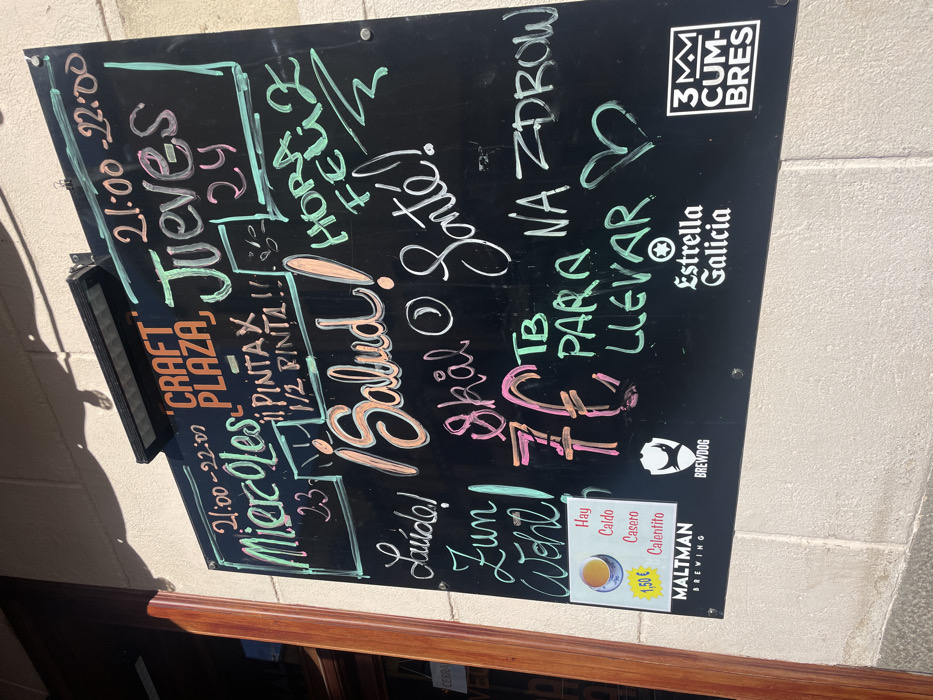 CRAFT
PLAZA
21:00-22:00
Miercoles
23
¡¡PINTA X
1/2 PINTA!!
21:00-22:00
Jueves
24
HORA
FELIZ
¡Salud!
Santé!
Skål
NA ZDROW
Zum
Wohl
7€
TB
PARA
LLEVAR
Hay
Caldo
Casero
Calentito
1,50 €
MALTMAN
BREWING
BREWDOG
Estrella
Galicia
3
CUM-
BRES